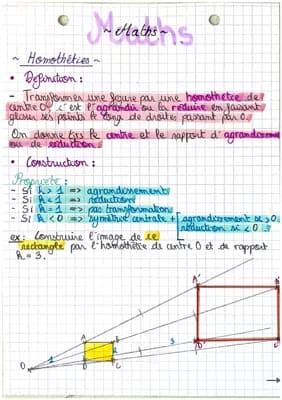 Maths
~ Maths ~
~ Homothéties ~
• Définition :
- Transformer une figure par une homothétie de
centre O, c'est l'agrandir ou la réduire en faisant
glisser ses points le long de droites passant par O.
On donne le centre et le rapport d'agrandissement
ou de réduction.
• Construction :
Propriété :
- Si k > 1 => agrandissement
- Si k < 1 => réduction
- Si k = 1 => pas transformation
- Si k < 0 => symétrie centrale + [agrandissement si > 0
réduction si < 0
ex : Construire l'image de ce
rectangle par l'homothétie de centre O et de rapport
k = 3.
A'
A
B
3
1
O
D
C
D'